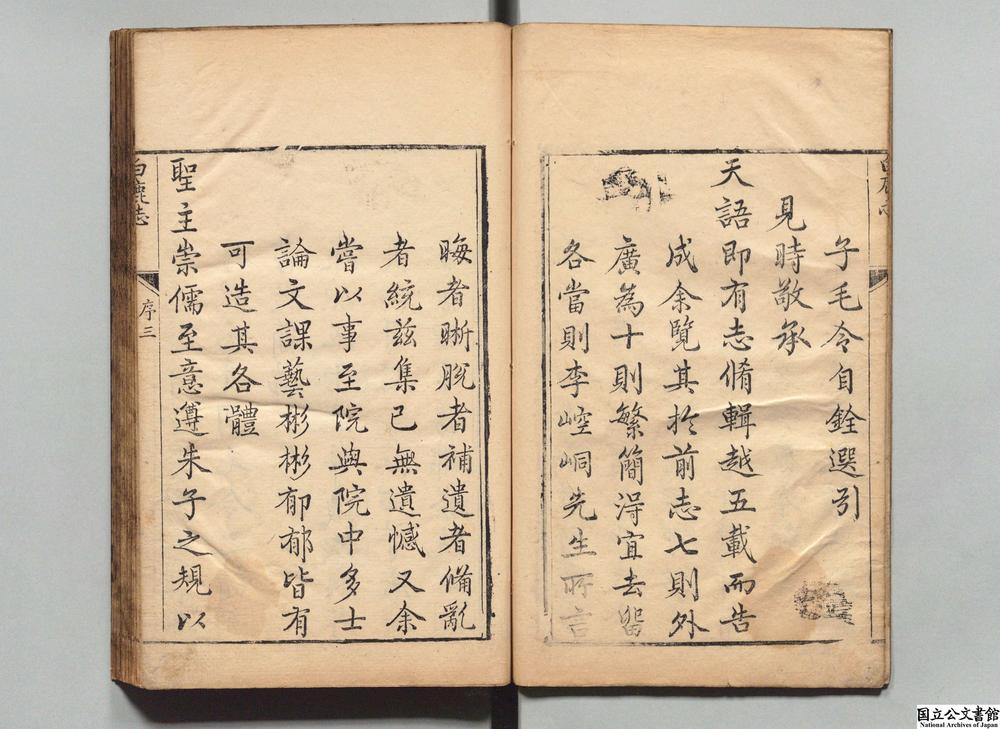 子毛令自銓選引
見時敬承
天語即有志脩輯越五載而告
成余覽其於前志七則外
廣為十則繁簡淂宜去畱
各當則李崆峒先生所言
晦者晰脫者補遺者備亂
者統兹集已無遺憾又余
嘗以事至院與院中多士
論文課藝彬彬郁郁皆有
可造其各體
聖主崇儒至意遵朱子之規以
白鹿志
序三
国立公文書館
National Archives of Japan